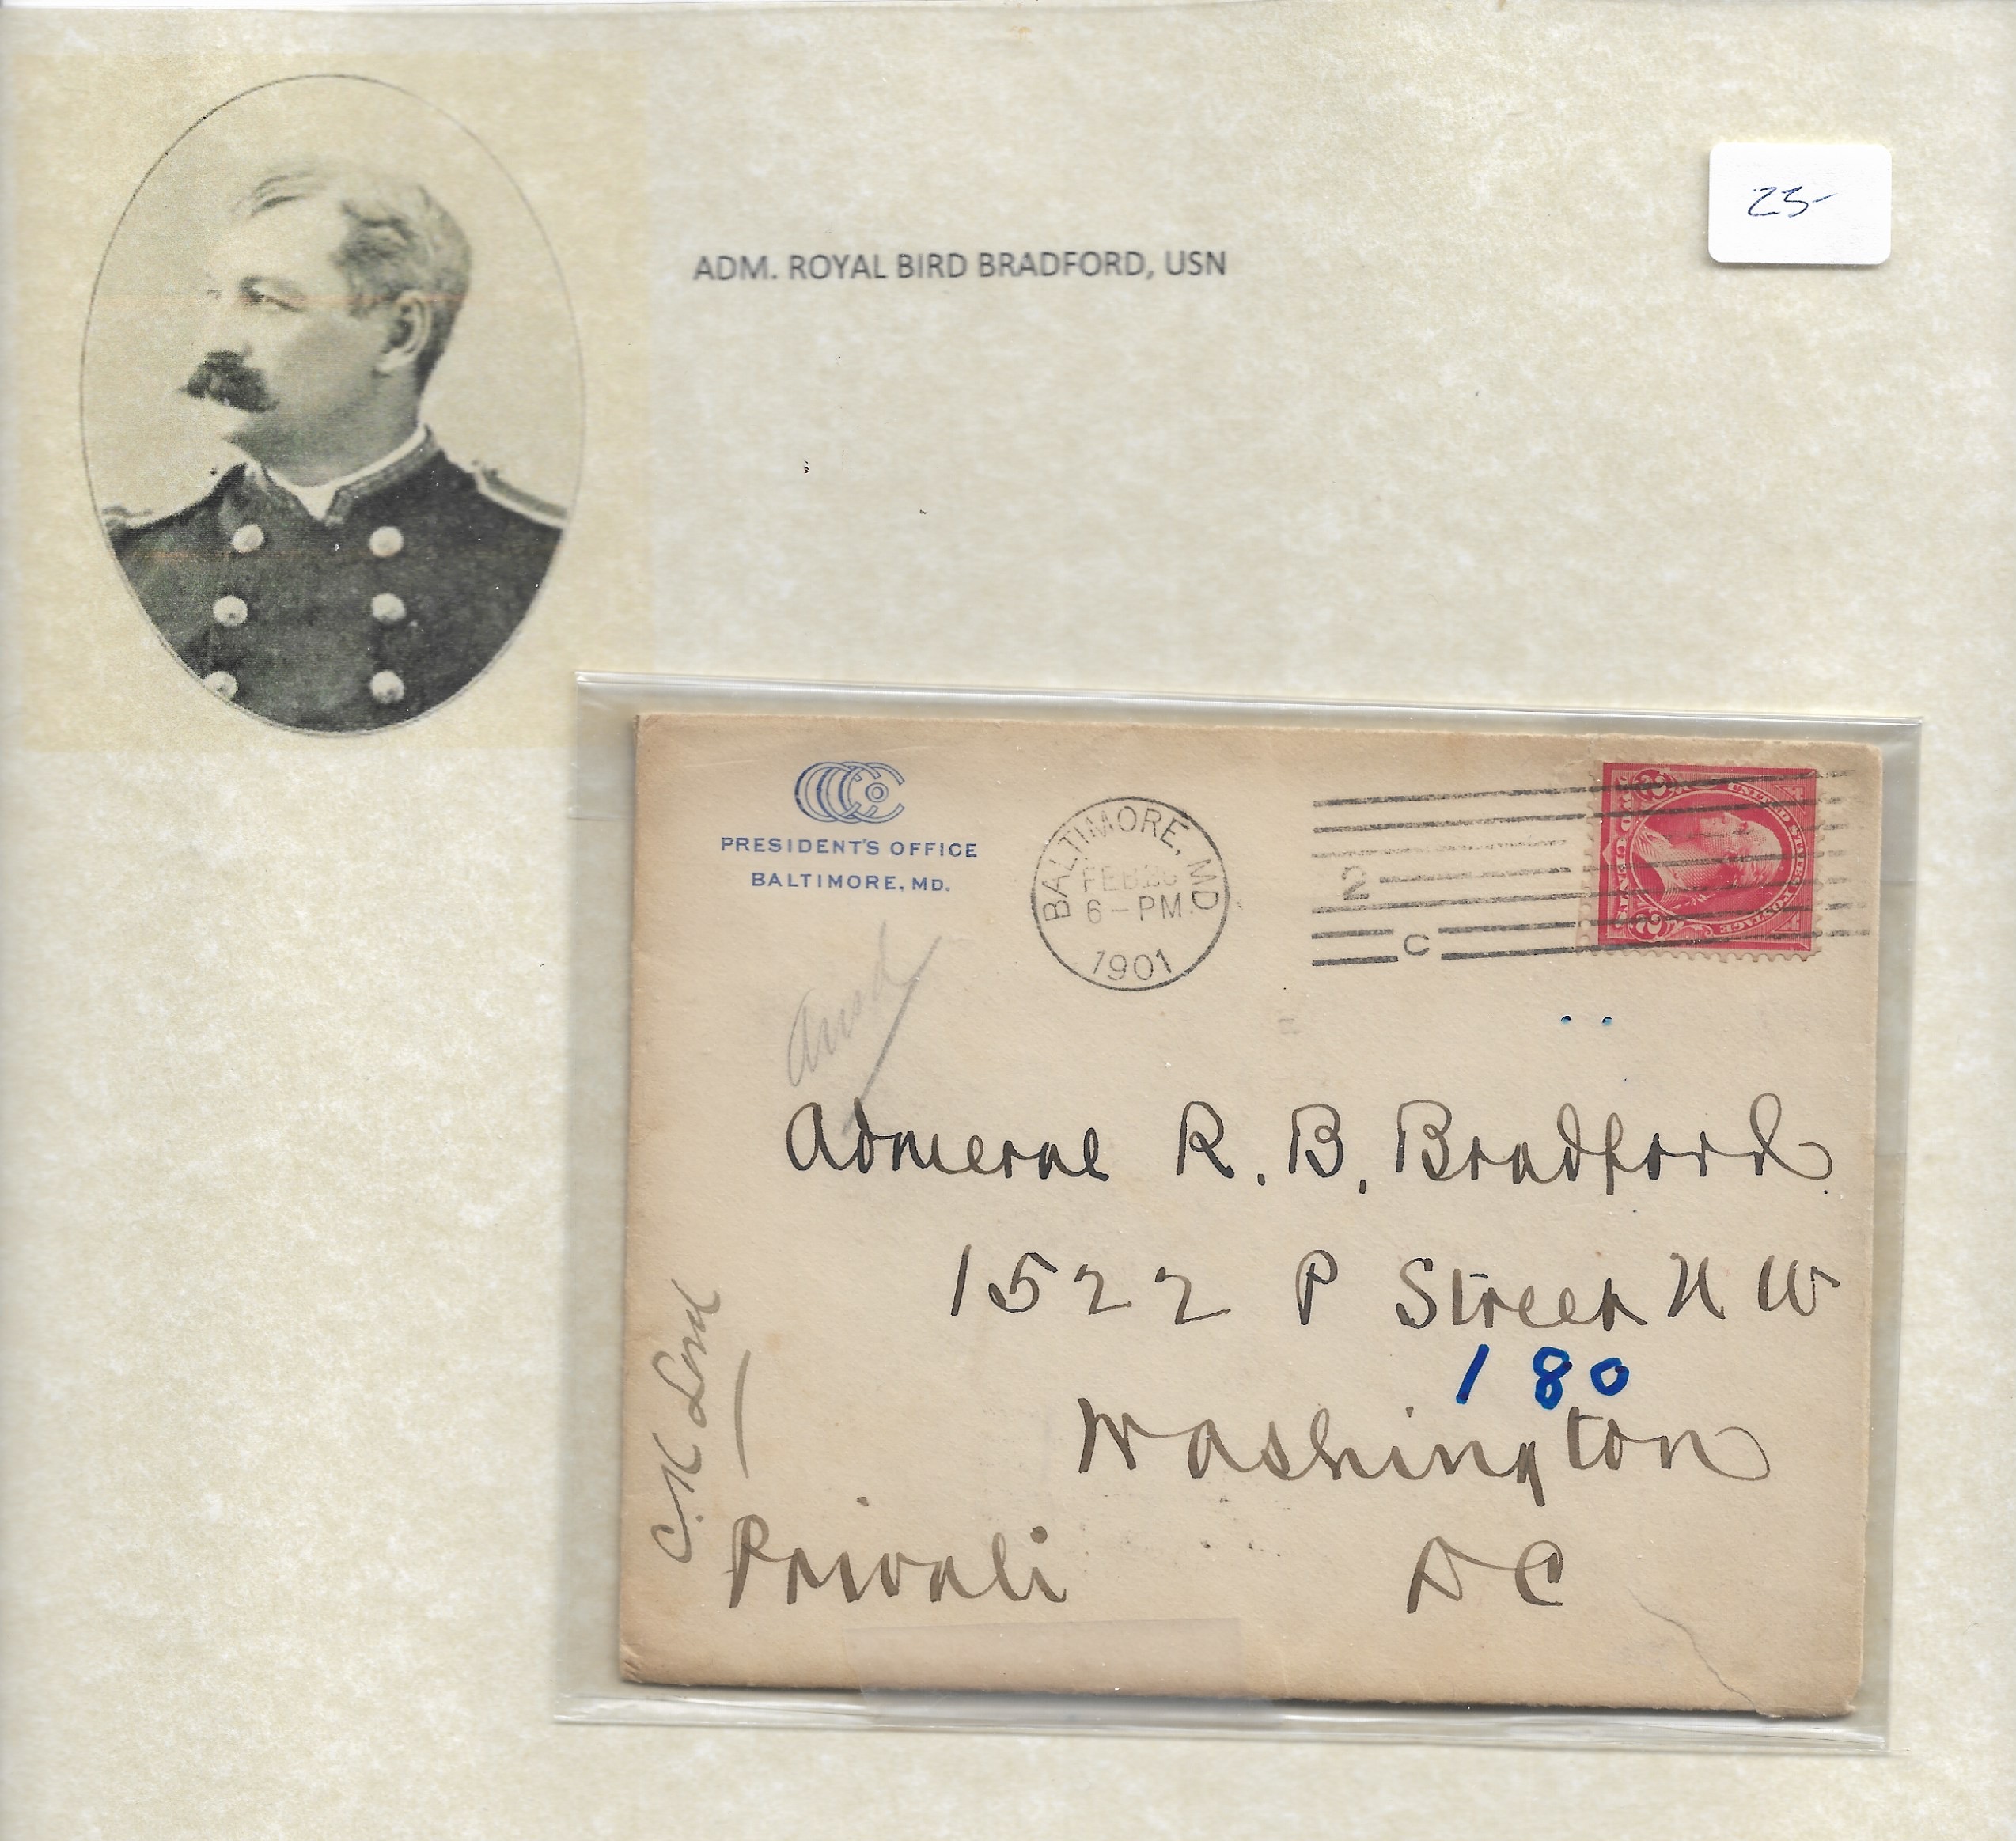 ADM. ROYAL BIRD BRADFORD, USN
25-
PRESIDENT'S OFFICE
BALTIMORE, MD.
BALTIMORE, MD
FEB
6-PM.
1901
2
C
UNITED STATES POSTAGE
2 2
Admiral R. B. Bradford
1522 P Street N W
180
Washington
D C
Private
C. K. Lord